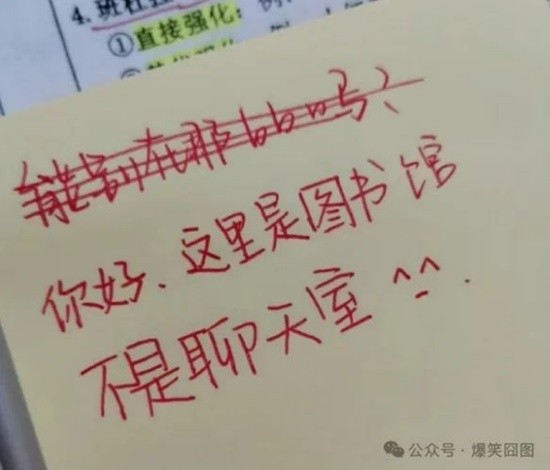 4. 班杜
①直接强化:
能别在那bb吗?
你好、这里是图书馆
不是聊天室 ^_^.
公众号·爆笑囧图